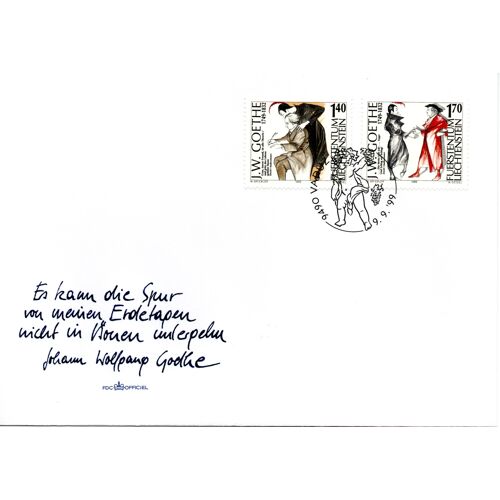 J.W. GOETHE
1749-1832
1.40
FÜRSTENTUM
LIECHTENSTEIN
J.W. GOETHE
1749-1832
1.70
FÜRSTENTUM
LIECHTENSTEIN
9490 VADUZ
9.9.99
Es kann die Spur
von meinen Erdetagen
nicht in Äonen untergehn
Johann Wolfgang Goethe
FDC OFFICIEL